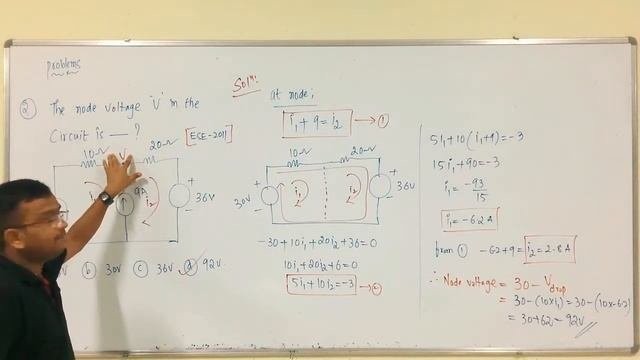 Problems
② The node voltage 'V' in the
Circuit is — ? [ESE-2011]
10Ω
V
20Ω
i₁
9A
i₂
+
36V
-
ⓑ 30V ⓒ 36V ⓓ 92V
Solⁿ:
at node;
i₁ + 9 = i₂ → ①
10Ω
20Ω
+
30V
-
i₁
i₂
+
36V
-
-30+10i₁+20i₂+36=0
10i₁+20i₂+6=0
5i₁+10i₂=-3 → ②
5i₁+10(i₁+9)=-3
15i₁+90=-3
i₁ = -93/15
i₁=-6.2A
from ① -6.2+9 = i₂=2.8A
∴ Node voltage = 30 - Vdrop
= 30-(10×i₁)=30-(10×-6.2)
= 30+62 = 92V